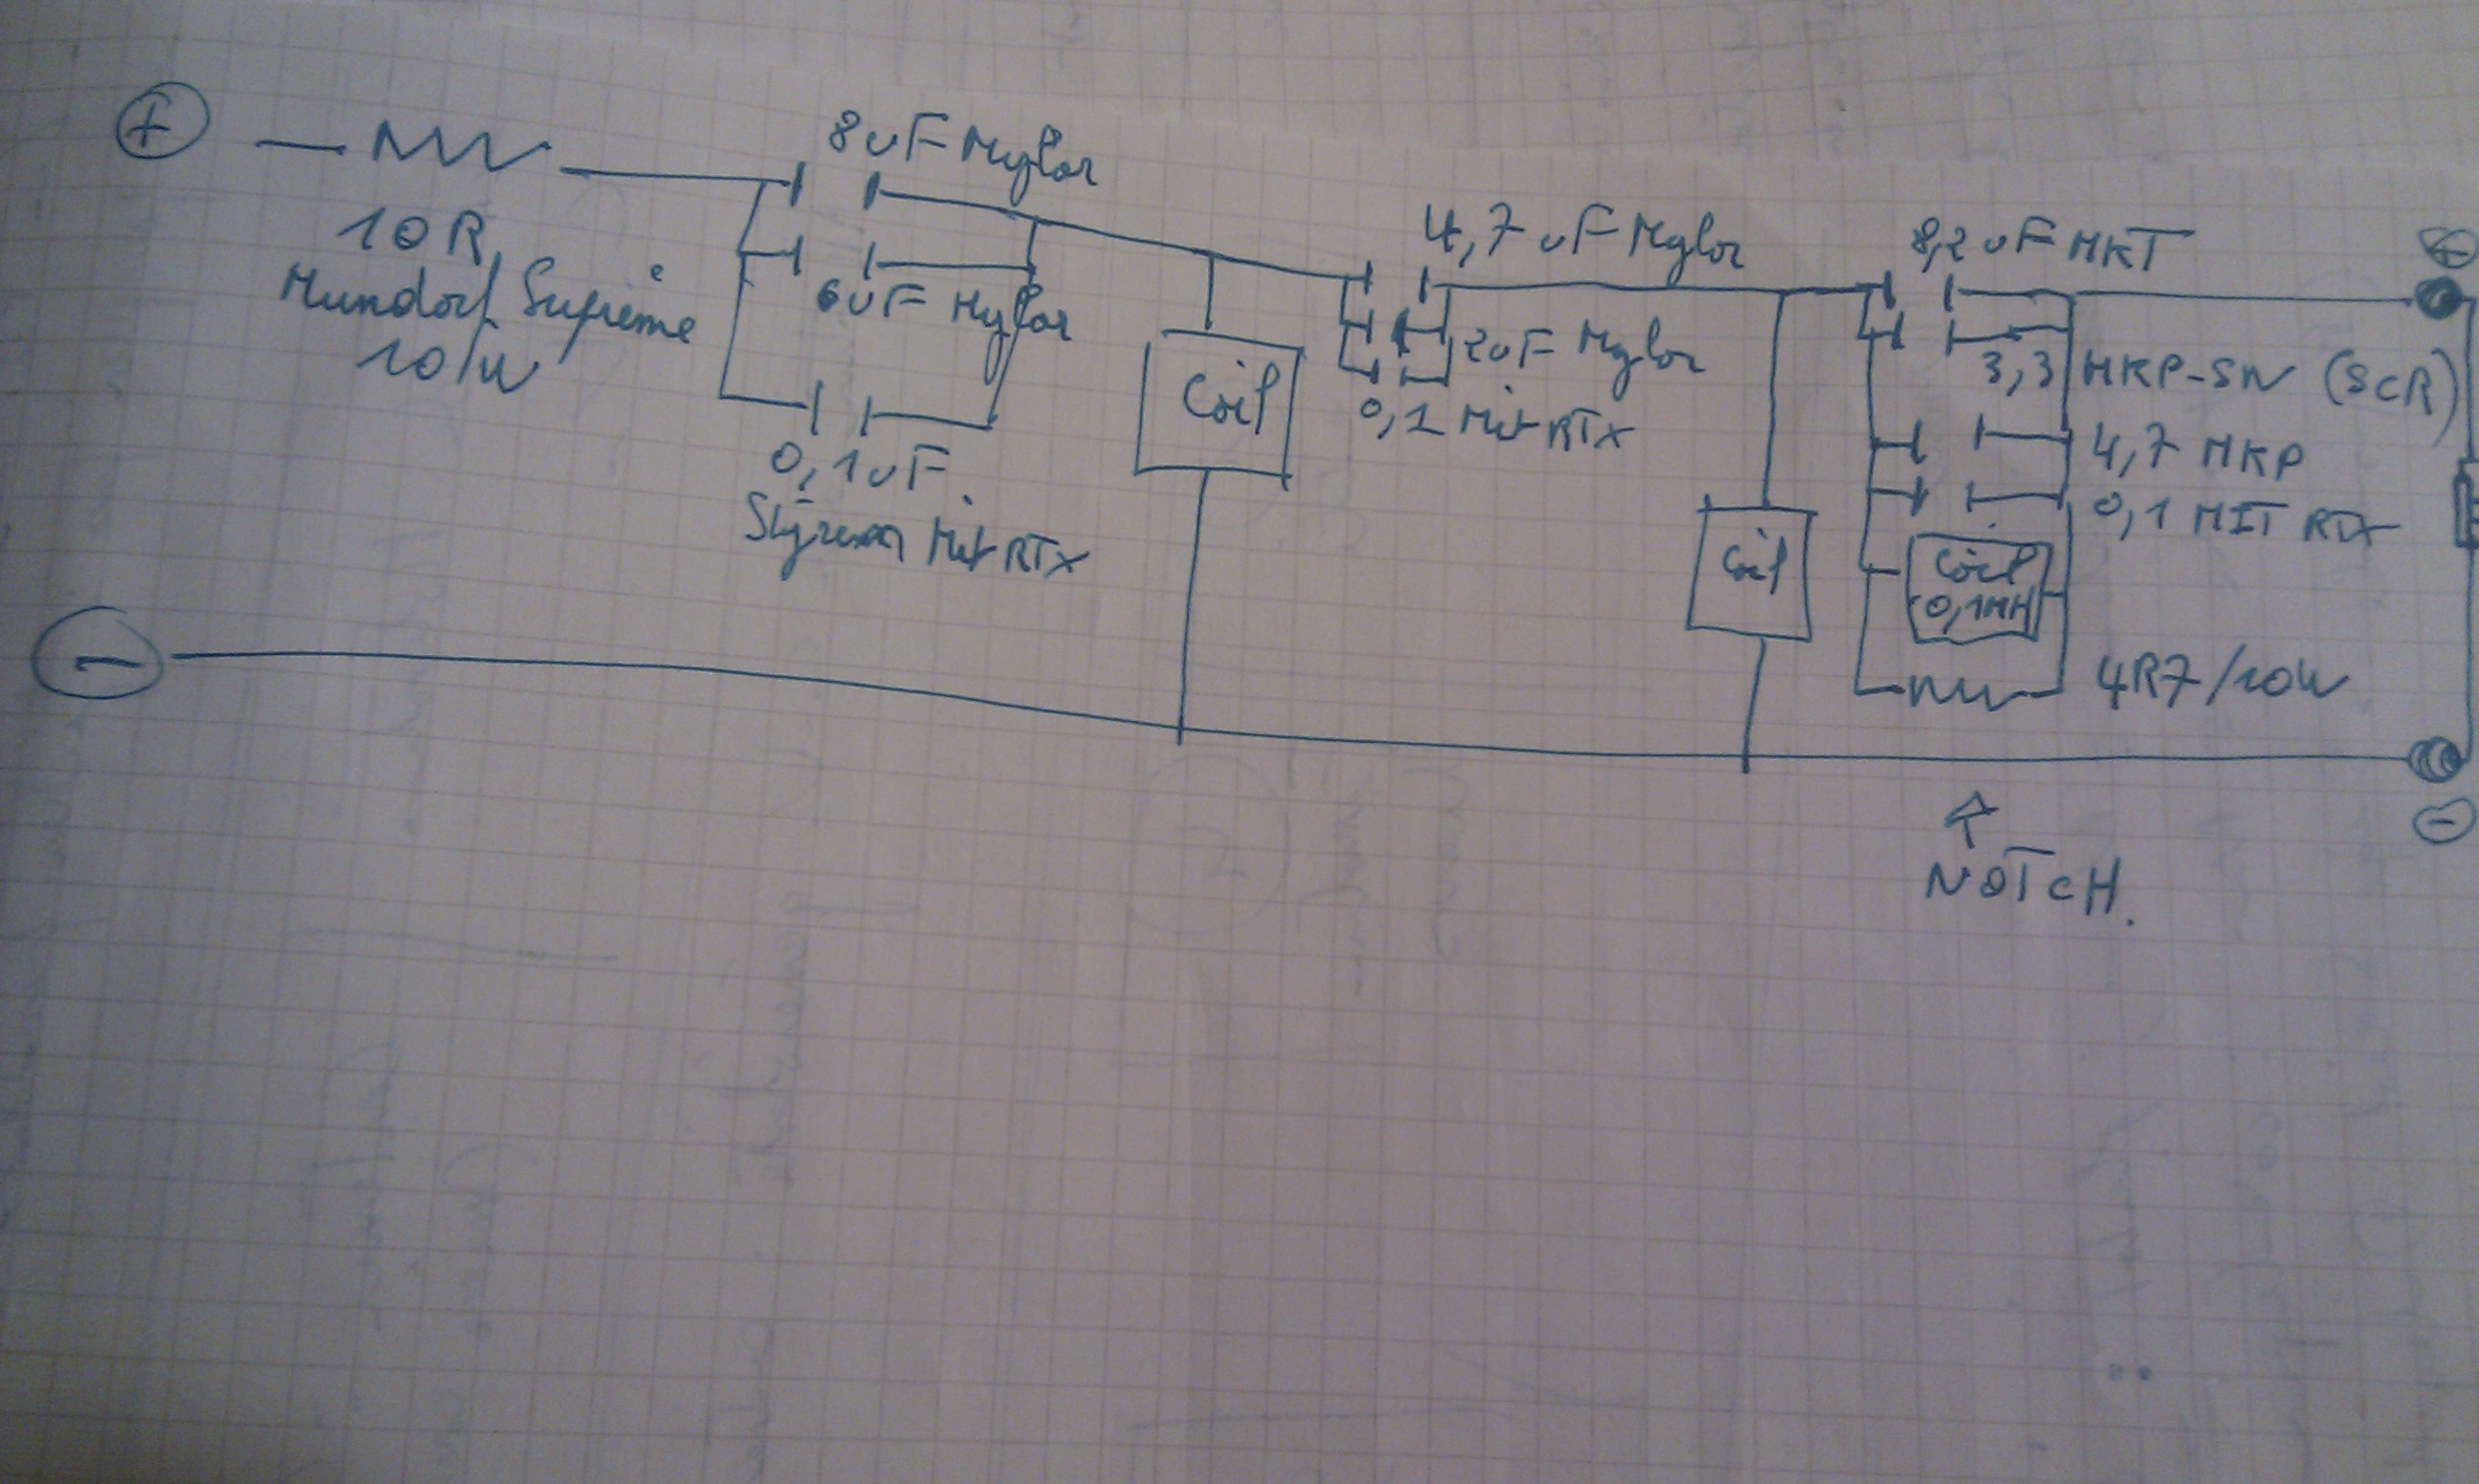 +
10R
Mundorf Supreme
10/W
8uF Mylar
6uF Mylar
0,1uF
Mit RTX
Coil
4,7 uF Mylar
2uF Mylar
0,1 Mit RTX
Coil
8,2 uF MKT
3,3 MKP-SN (SCR)
4,7 MKP
0,1 MIT RTX
Coil
0,1MH
4R7/10W
+
-
-
NOTCH.